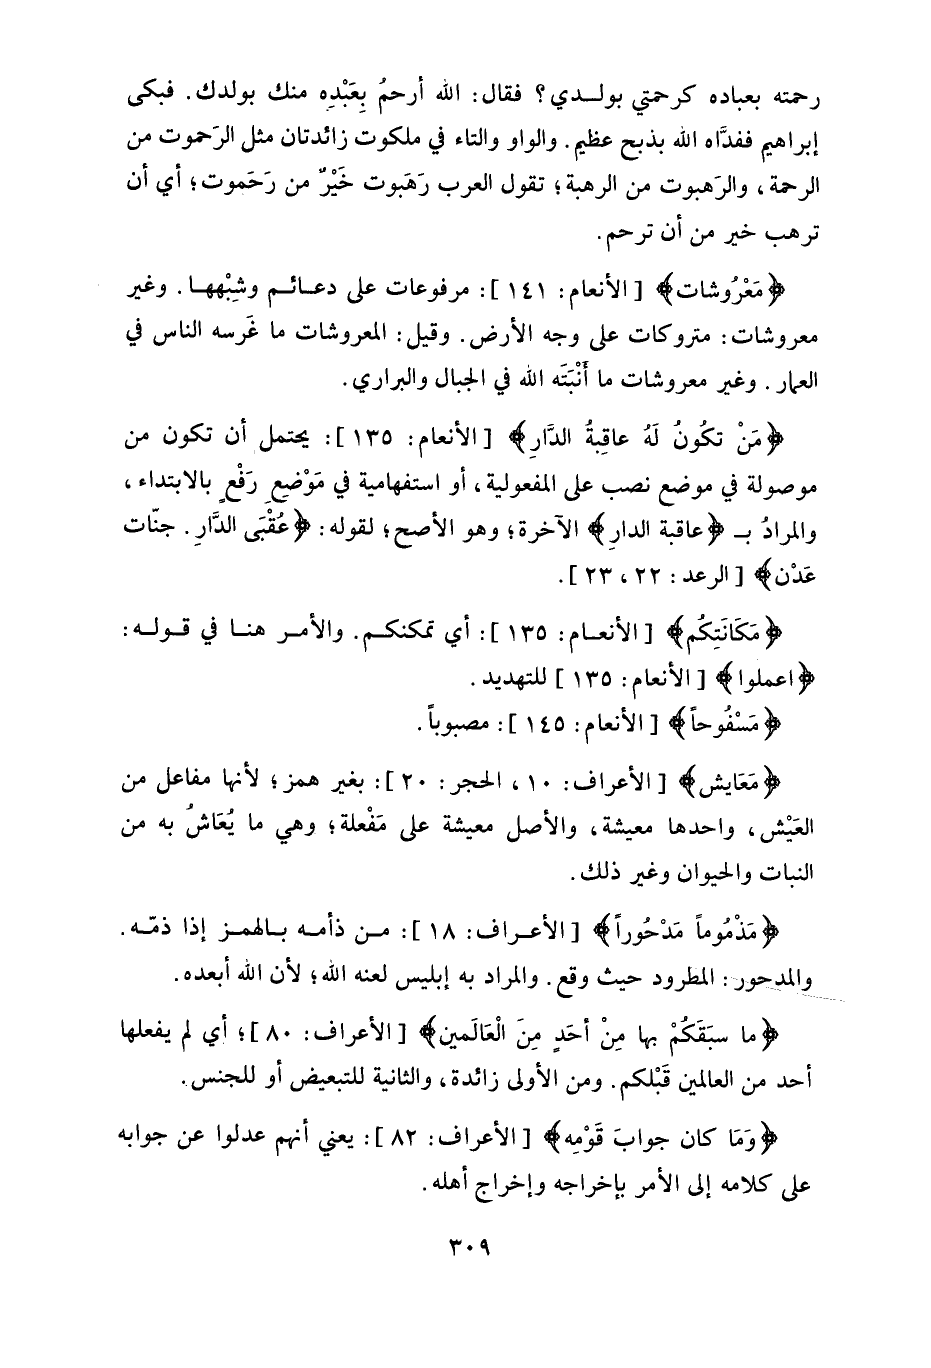 رحمته بعباده كرحمتي بولدي؟ فقال: الله أرحمُ بِعَبْدِه منك بولدك. فبكى
إبراهيم ففدَّاه الله بذبح عظيم. والواو والتاء في ملكوت زائدتان مثل الرَحموت من
الرحمة، والرَهبوت من الرهبة؛ تقول العرب رَهَبوت خَيْرٌ من رَحَموت؛ أي أن
ترهب خير من أن ترحم.
﴿مَعْرُوشات﴾ [الأنعام: ١٤١]: مرفوعات على دعائم وشِبْهها. وغير
معروشات: متروكات على وجه الأرض. وقيل: المعروشات ما غَرسه الناس في
العمار. وغير معروشات ما أَنْبَتَه الله في الجبال والبراري.
﴿مَنْ تكُونُ لَهُ عاقِبةُ الدَّارِ﴾ [الأنعام: ١٣٥]: يحتمل أن تكون من
موصولة في موضع نصب على المفعولية، أو استفهامية في مَوْضعِ رَفْعٍ بالابتداء،
والمرادُ بـ ﴿عاقبة الدارِ﴾ الآخرة؛ وهو الأصح؛ لقوله: ﴿عُقْبَى الدَّارِ. جنّات
عَدْن﴾ [الرعد: ٢٢، ٢٣].
﴿مَكَانَتِكُم﴾ [الأنعام: ١٣٥]: أي تمكنكم. والأمر هنا في قوله:
﴿اعملوا﴾ [الأنعام: ١٣٥] للتهديد.
﴿مَسْفُوحاً﴾ [الأنعام: ١٤٥]: مصبوباً.
﴿مَعَايش﴾ [الأعراف: ١٠، الحجر: ٢٠]: بغير همز؛ لأنها مفاعل من
العَيْش، واحدها معيشة، والأصل معيشة على مَفْعلة؛ وهي ما يُعَاشُ به من
النبات والحيوان وغير ذلك.
﴿مَذْمُوماً مَدْحُوراً﴾ [الأعراف: ١٨]: من ذأمه بالهمز إذا ذمّه.
والمدحور: المطرود حيث وقع. والمراد به إبليس لعنه الله؛ لأن الله أبعده.
﴿ما سبَقَكُمْ بها مِنْ أحَدٍ مِنَ الْعَالَمين﴾ [الأعراف: ٨٠]؛ أي لم يفعلها
أحد من العالمين قَبْلكم. ومن الأولى زائدة، والثانية للتبعيض أو للجنس.
﴿وَمَا كان جوابَ قَوْمِه﴾ [الأعراف: ٨٢]: يعني أنهم عدلوا عن جوابه
على كلامه إلى الأمر بإخراجه وإخراج أهله.
٣٠٩